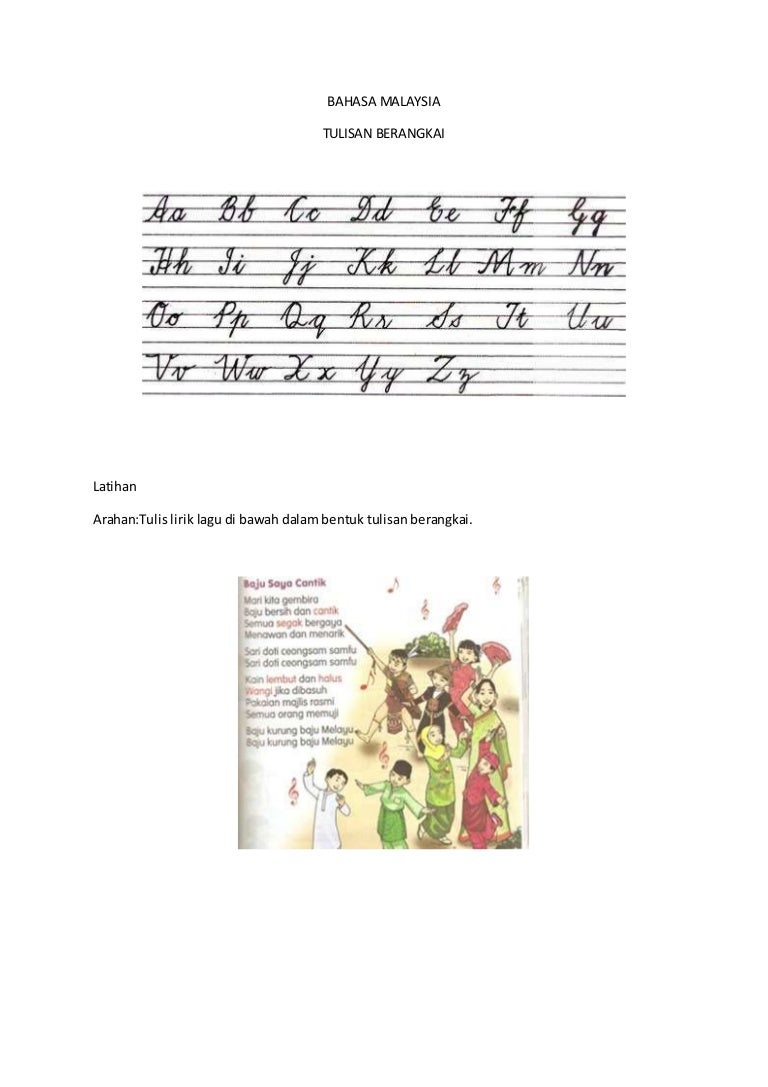 BAHASA MALAYSIA
TULISAN BERANGKAI
Aa Bb Cc Dd Ee Ff Gg
Hh Ii Jj Kk Ll Mm Nn
Oo Pp Qq Rr Ss Tt Uu
Vv Ww Xx Yy Zz
Latihan
Arahan:Tulis lirik lagu di bawah dalam bentuk tulisan berangkai.
Baju Saya Cantik
Mari kita gembira
Baju bersih dan cantik
Semua segak bergaya
Menawan dan menarik
Sari doti ceongsam samfu
Sari doti ceongsam samfu
Kain lembut dan halus
Wangi jika dibasuh
Pakaian majlis rasmi
Semua orang memuji
Baju kurung baju Melayu
Baju kurung baju Melayu